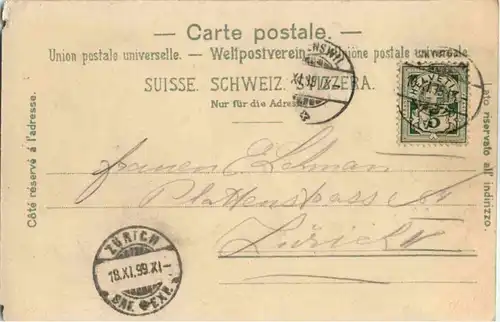 Carte postale.
Union postale universelle. — Weltpostverein. — Unione postale universale.
SUISSE. SCHWEIZ. SVIZZERA.
Nur für die Adresse.
Côté réservé à l'adresse.
lato riservato all' indirizzo.
HELVETIA
5
Frauen E. Lehmann
Plattenstrasse
Zürich
ZÜRICH
18.XI.99.XI-
BRF. EXP.